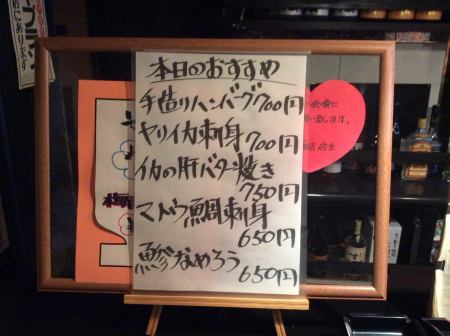 本日のおすすめ
手造りハンバーグ700円
ヤリイカ刺身
700円
イカの肝バター焼き
750円
マトウ鯛刺身
650円
鯵なめろう
650円
店主